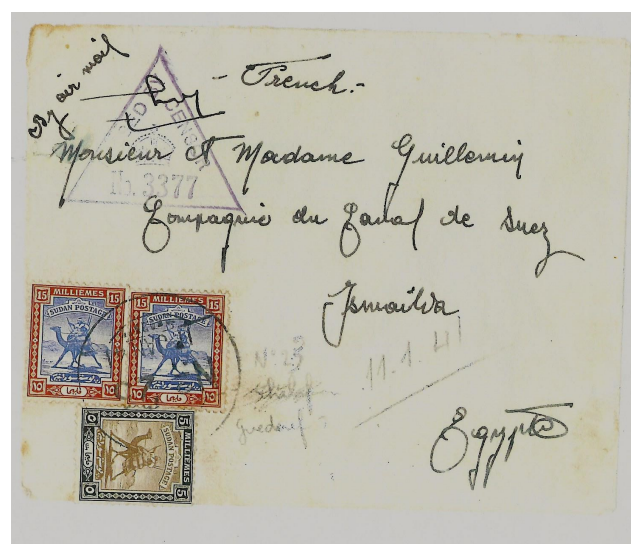 By air mail
- French.-
PASSED CENSOR
No. 3377
Monsieur et Madame Guillemin
Compagnie du Canal de Suez
Ismailia
Egypte
15 MILLIEMES 15
SUDAN POSTAGE
15 MILLIEMES 15
SUDAN POSTAGE
5 MILLIEMES 5
SUDAN POSTAGE
N° 23
11.1.41